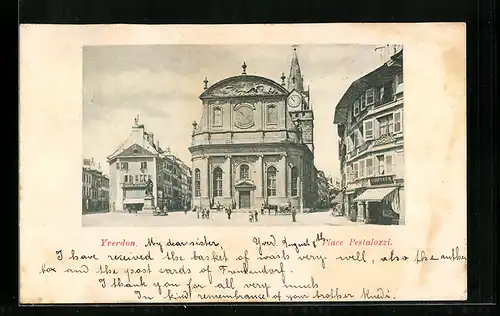 Yverdon. My dear sister, Yverd. August 8th Place Pestalozzi.
I have received the basket of washs very well, also the other
box and the post cards of Frutendorf.
I thank you for all very much
In kind remembrance of your brother